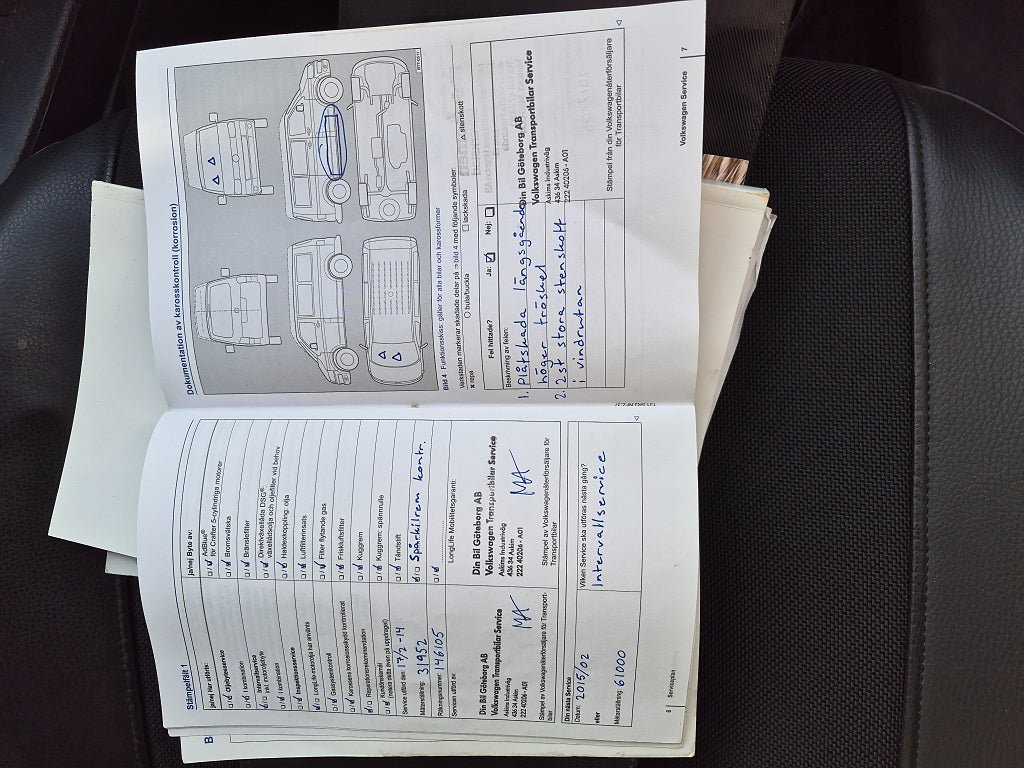 Stämpelfält 1
ja/nej Har utförts:
Oljebytesservice
I kombination
Intervallservice
inkl motoroljebyte
I kombination
Inspektionsservice
LongLife-motorolja har använts
Gassystemkontroll
Karossens korrosionsskydd kontrollerat
Reparationsrekommendation
Kundönskemål
(märks detta även på uppdraget)
Service utförd den: 17/2-14
Mätarställning: 31952
Räkningsnummer: 146105
Servicen utförd av:
Din Bil Göteborg AB
Volkswagen Transportbilar Service
Askims Industriväg
436 34 Askim
222 40206 - A01
MA
Stämpel av Volkswagenåterförsäljare för Transport-
bilar
ja/nej Byte av:
AdBlue®
för Crafter 5-cylindriga motorer
Bromsvätska
Bränslefilter
Direktväxellåda DSG®:
växellådsolja och oljefilter vid behov
Haldexkoppling: olja
Luftfilterinsats
Filter flytande gas
Friskluftsfilter
Kuggrem
Kuggrem: spännrulle
Tändstift
Spårkilrem kontr.
LongLife Mobilitetsgaranti:
Din Bil Göteborg AB
Volkswagen Transportbilar Service
Askims Industriväg
436 34 Askim
222 40206 - A01
MA
Stämpel av Volkswagenåterförsäljare för
Transportbilar
Din nästa Service
Datum: 2015/02
eller
Mätarställning: 61000
Vilken Service ska utföras nästa gång?
Intervallservice
6 Serviceplan
Dokumentation av karosskontroll (korrosion)
Bild 4 Funktionsskiss: gäller för alla bilar och karossformer
Verkstaden markerar skadade delar på ⇒ bild 4 med följande symboler:
x repa ○ bula/buckla □ lackskada △ stenskott
Fel hittade? Ja: ☑ Nej: □
Beskrivning av felen:
1. Plåtskada längsgående
höger tröskel
2. 2st stora stenskott
i vindrutan
Din Bil Göteborg AB
Volkswagen Transportbilar Service
Askims Industriväg
436 34 Askim
222 40206 - A01
Stämpel från din Volkswagenåterförsäljare
för Transportbilar
Volkswagen Service 7